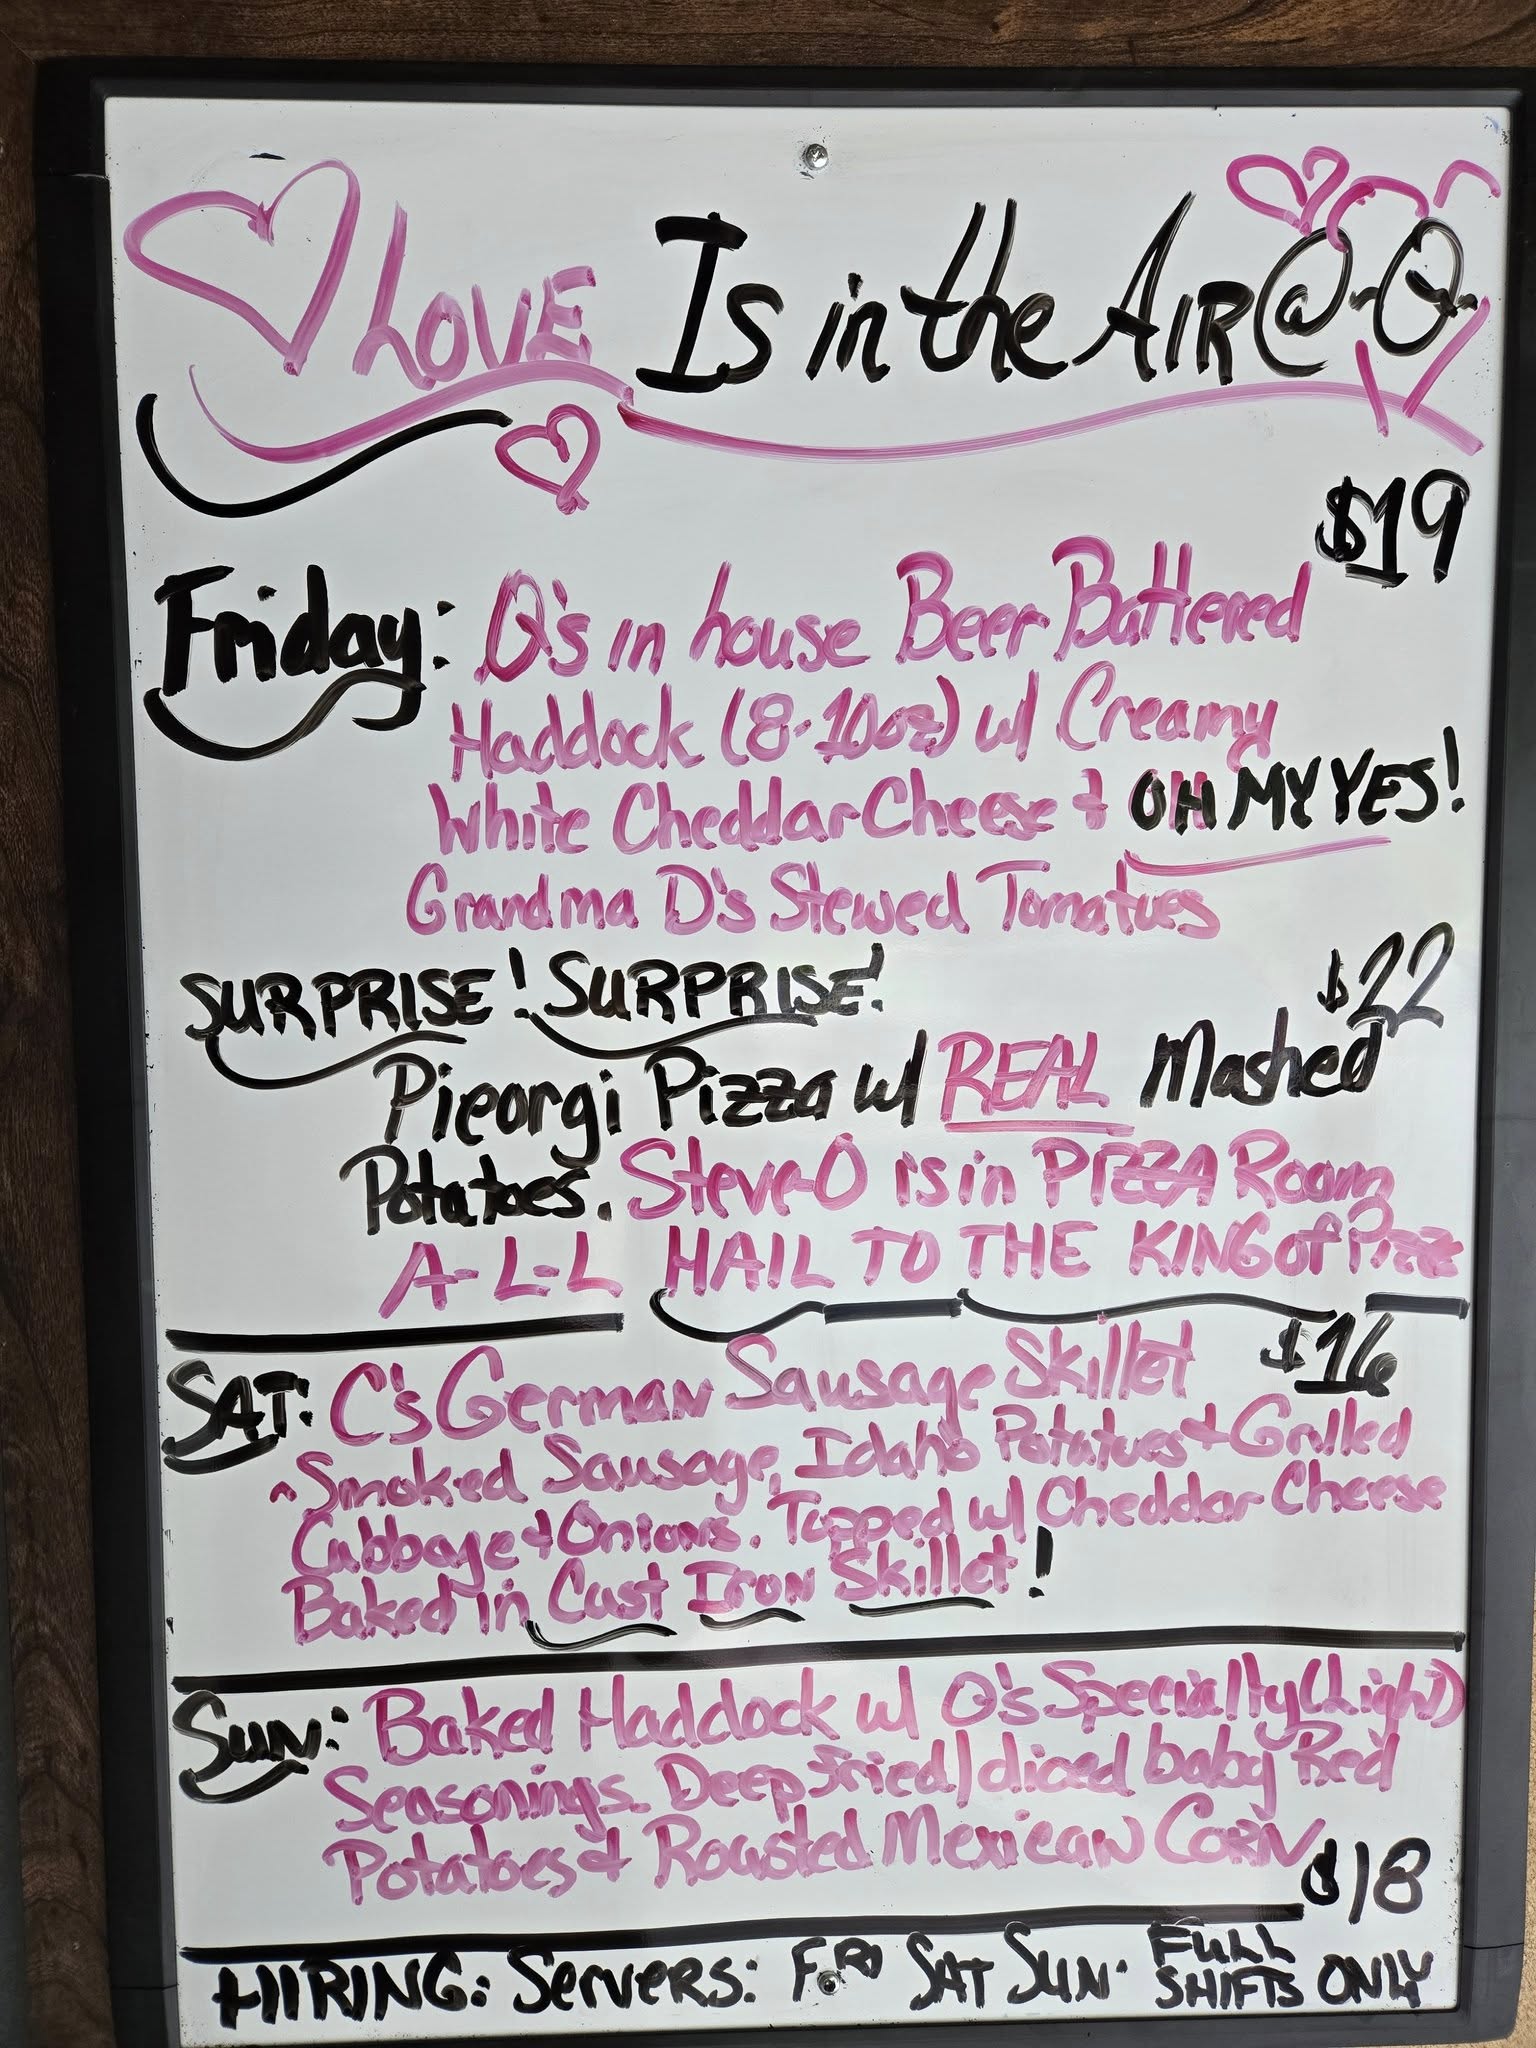 LOVE Is in the AIR @ Q
$19
Friday: Q's in house Beer Battered
Haddock (8-10oz) w/ Creamy
White Cheddar Cheese + OH MY YES!
Grandma D's Stewed Tomatoes
SURPRISE! SURPRISE! $22
Pieorgi Pizza w/ REAL Mashed
Potatoes. Steve-O is in PIZZA Room
A-L-L HAIL TO THE KING of Pizz
SAT: C's German Sausage Skillet $16
~Smoked Sausage, Idaho Potatoes + Grilled
Cabbage + Onions. Topped w/ Cheddar Cheese
Baked in Cast Iron Skillet!
Sun: Baked Haddock w/ Q's Specialty (Light)
Seasonings. Deep fried/diced baby Red
Potatoes & Roasted Mexican Corn
$18
HIRING: Servers: FRI SAT SUN. FULL SHIFTS ONLY